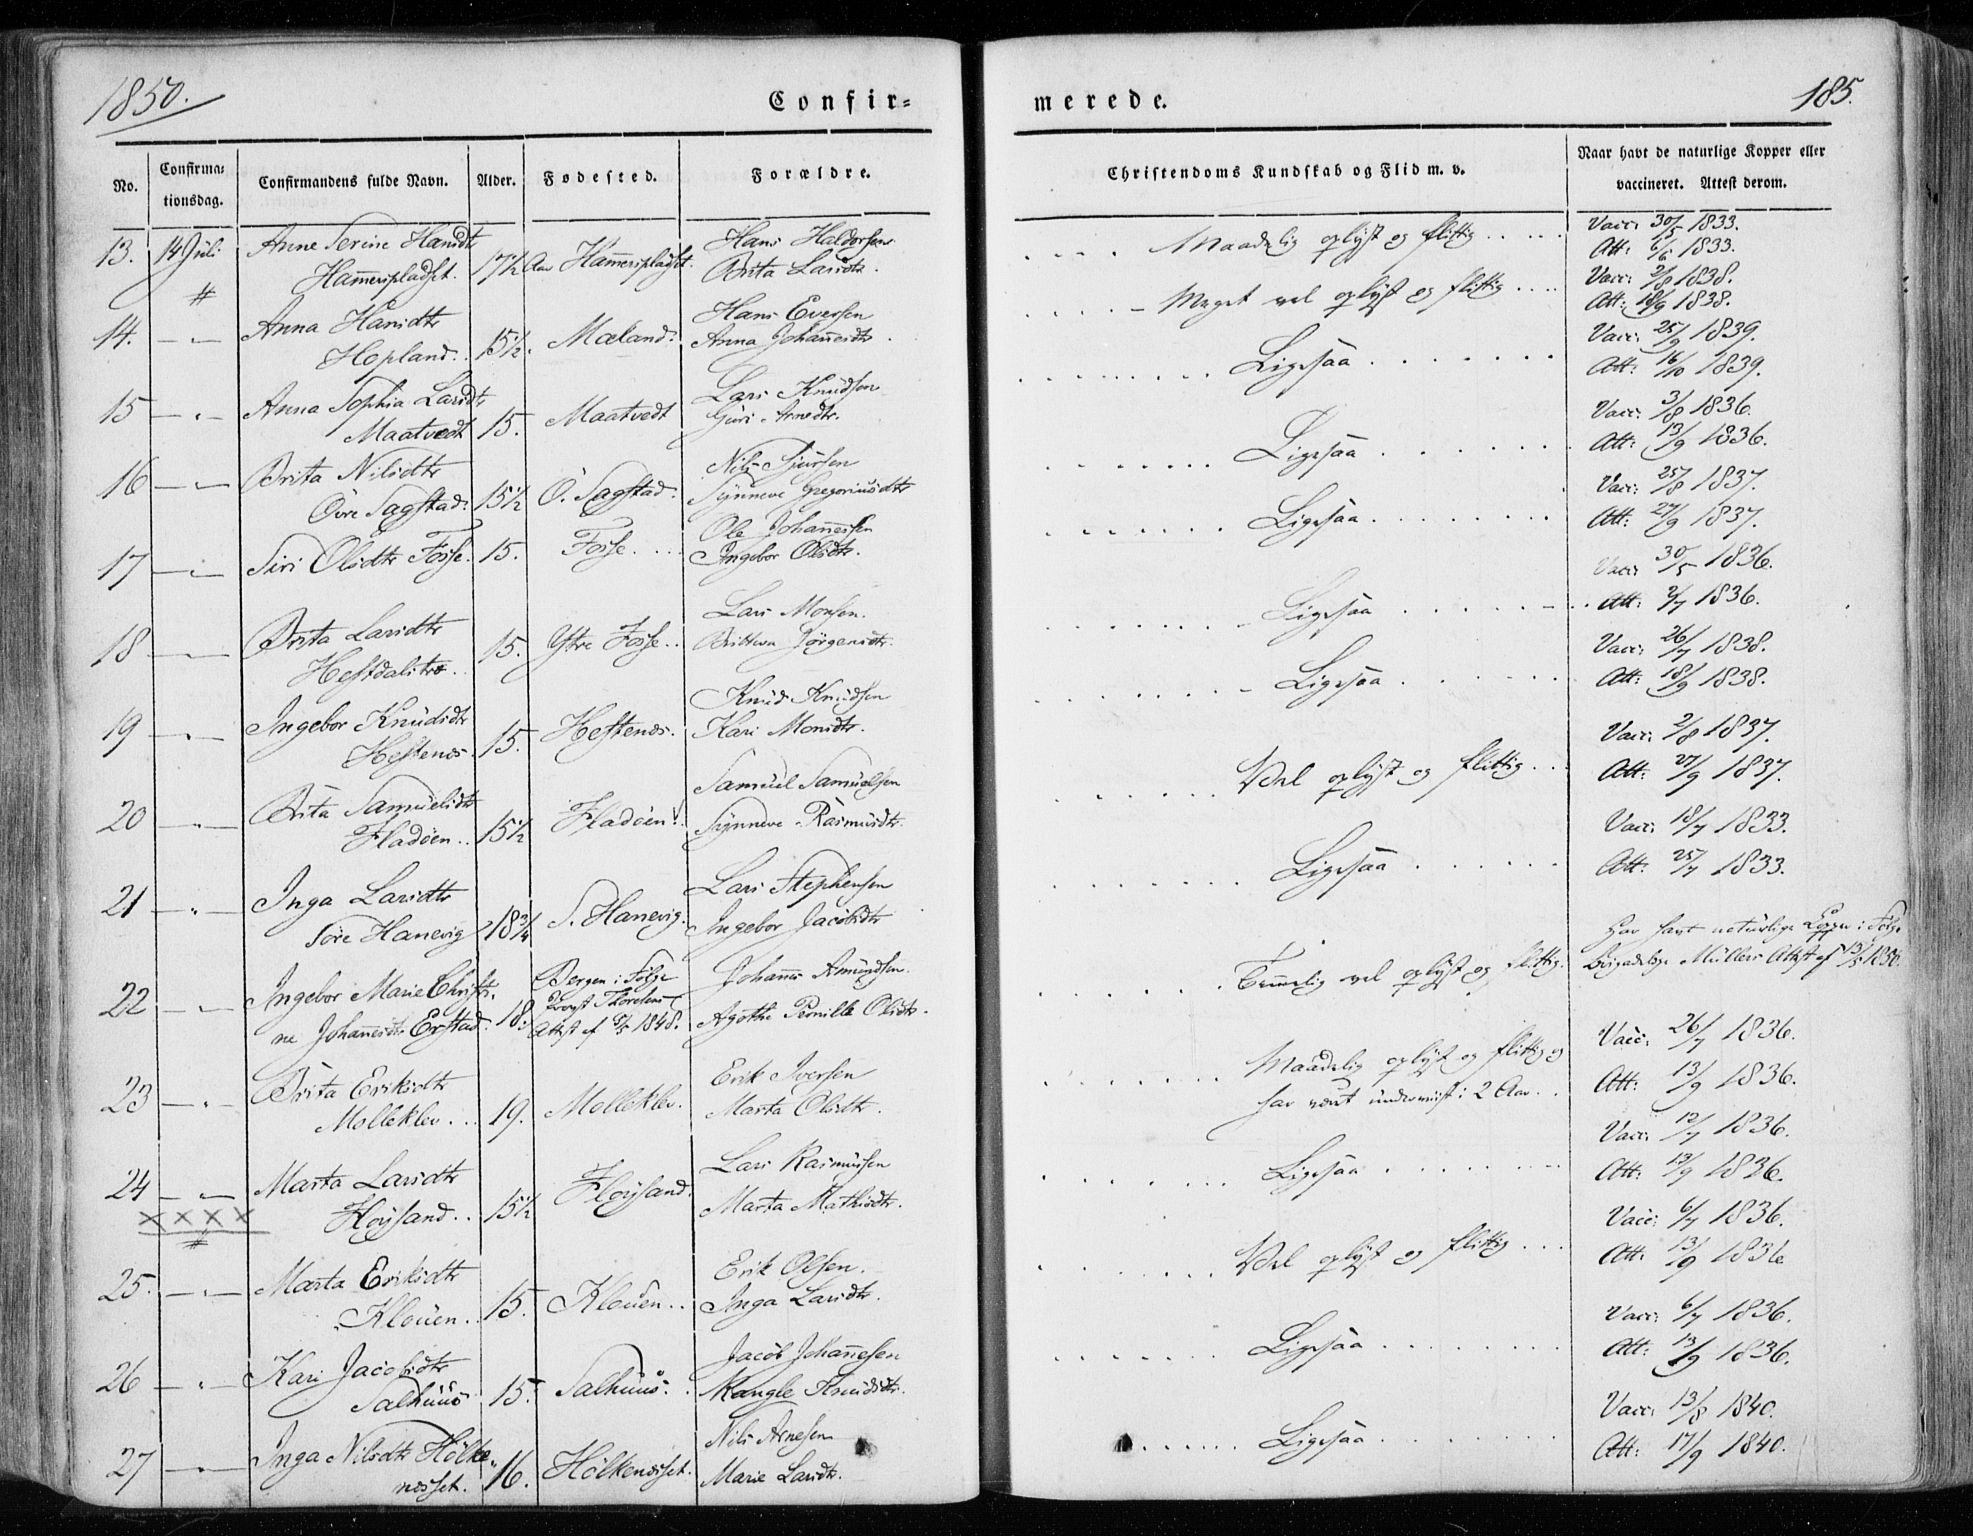 1850.
Confir=
No.
Confirma:
tionsdag.
Confirmandens fulde Navn.
Alder.
Fødested.
Forældre.
13. 14 Juli Anne Serine Hansdtr 17½ Aar Hamerspladset. Hans Haldorsen
Hamerspladset. Brita Larsdtr.
#
14. — " — Anna Hansdtr 15½. Mæland. Hans Eversen
Hopland. Anna Johannesdtr.
15 — " — Anna Sophia Larsdtr 15. Maatvedt Lars Knudsen
Maatvedt Guri Arnedtr.
16 — " — Brita Nilsdtr 15½ Ö. Sagstad. Nils Sjursen
Övre Sagstad. Synneve Gregoriusdtr
17 — " — Siri Olsdtr Fosse. 15. Fosse.... Ole Johannessen
Ingebor Olsdtr.
18 — " — Brita Larsdtr 15. Ytre Fosse.. Lars Monsen.
Hestdalitræ. Britteva Jörgensdtr.
19 — " — Ingebor Knudsdtr 15. Hestenes. Knud Knudsen
Hestenes. Kari Monsdtr.
20 — " — Brita Samuelsdtr 15½ Fladöen. Samuel Samuelsen
Fladöen.. Synneve Rasmusdtr.
21 — " — Inga Larsdtr 18¾ S. Hanevig. Lars Stephensen
Söre Hanevig Ingebor Jacobsdtr
22 — " — Ingebor Marie Christi- 18. Bergen i Fölge Johannes Amundsen.
ne Johannesdtr Erstad. Provst Thoresens Attest af 5/5 1848. Agathe Pernille Olsdtr.
23 — " — Brita Eriksdtr 19. Molleklev. Erik Iversen
Molleklev... Marta Olsdtr.
24 — " — Marta Larsdtr 15½ Flöysand. Lars Rasmussen
Flöysand.. Marta Mathisdtr.
××××
#
25. — " — Marta Eriksdtr 15. Klouen.. Erik Olsen.
Klouen. Inga Larsdtr.
26 — " — Kari Jacobsdtr 15. Salhuus. Jacob Johannesen
Salhuus Rangle Knudsdtr.
27 — " — Inga Nilsdtr Hölke- 16. Hölkenesset. Nils Arnesen
nesset. Marie Larsdtr.
merede.
185.
Christendoms Kundskab og Flid m. v.
Naar havt de naturlige Kopper eller
vaccineret. Attest derom.
Maadelig oplyst og flittig Vacc: 30/5 1833.
Att: 6/6 1833.
Meget vel oplyst og flittig Vacc: 2/8 1838.
Att: 18/9 1838.
Ligesaa Vacc: 25/9 1839.
Att: 16/10 1839.
Ligesaa Vacc: 3/8 1836.
Att: 13/9 1836.
Ligesaa Vacc: 25/8 1837.
Att: 27/9 1837.
Ligesaa Vacc: 30/5 1836.
Att: 2/7 1836.
Ligesaa Vacc: 26/7 1838.
Att: 18/9 1838.
Vel oplyst og flittig Vacc: 2/8 1837.
Att: 27/9 1837.
Ligesaa Vacc: 18/7 1833.
Att: 25/7 1833.
Temmelig vel oplyst og flittig. Har havt naturlige Kopper i Fölge
Brigadelæge Müllers Attest af 13/5 1850.
Maadelig oplyst og flittig og Vacc: 26/7 1836.
har været underviist i 2 Aar.. Att: 13/9 1836.
Ligesaa Vacc: 12/7 1836.
Att: 13/9 1836.
Vel oplyst og flittig Vacc: 6/7 1836.
Att: 13/9 1836
Ligesaa Vacc: 6/7 1836.
Att: 13/9 1836.
Ligesaa Vacc: 13/8 1840.
Att: 17/9 1840.